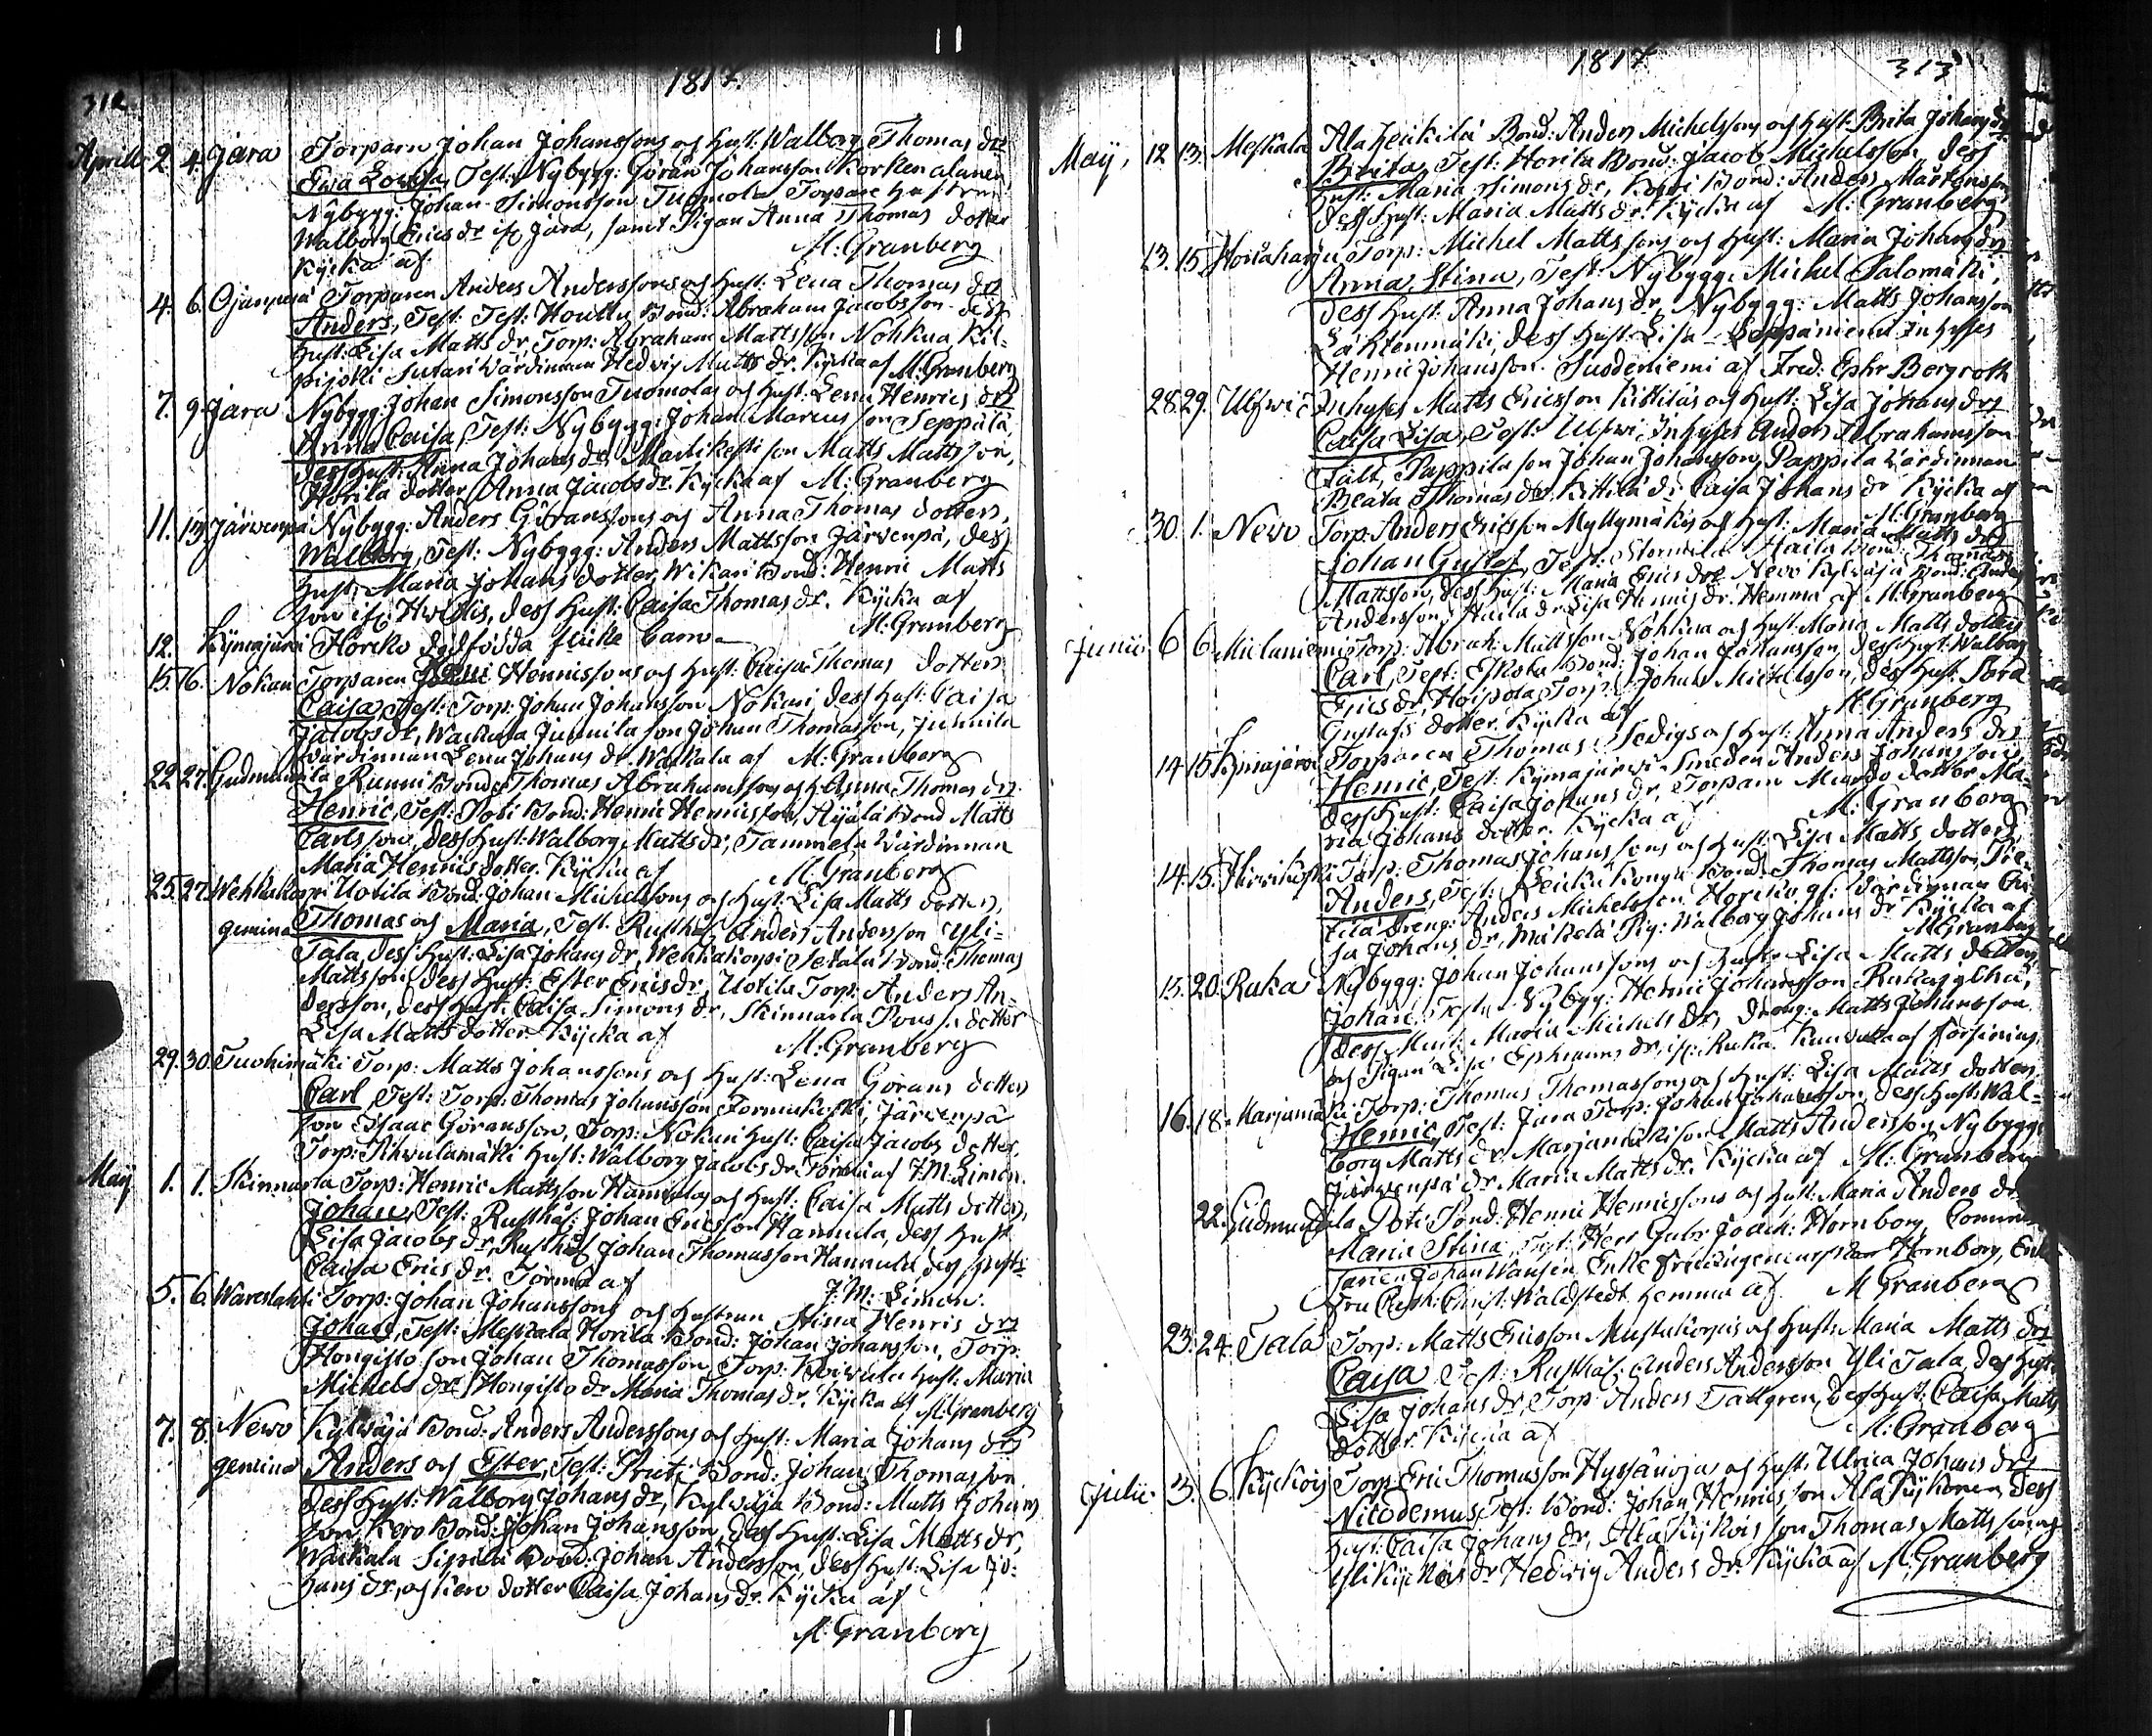 312
1817.
Aprill. 2. 4. Jara Torparn Johan Johanssons och Hust: Walborg Thomas dr
Ewa Lowisa, Test: Nybygg: Göran Johansson Korkenalanen,
Nybygg: Johan Simonsson Tuomola Torpare hustrun
Walborg Erics dr ifr Jara, samt Pigan Anna Thomas dotter
Kycka af M: Granberg
4. 6. Ojanperä Torparen Anders Anderssons och Hust: Lena Thomas drs
Anders, Test: Test: Houttu Bond: Abraham Jacobsson dess
Hust: Lisa Matts dr Torp: Abraham Mattsson Nohkua Kil-
pijoki Sutari Wärdinnan Hedvig Matts dr. Kycka af M: Granberg
7. 9. Jara Nybygg: Johan Simonsson Tuomolas och Hust: Lena Henrics drs
Anna Caisa, Test: Nybygg: Johan Marcusson Seppälä,
dess Hust: Anna Johans dr, Martikesti son Matts Mattsson,
Horila dotter Anna Jacobs dr. Kycka af M: Granberg
11. 13. Järwenpä Nybygg: Anders Göranssons och Anna Thomas dotters,
Walborg, Test: Nybygg: Anders Mattsson Järvenpä, dess
Hust: Maria Johans dotter, Wikari Bond: Henric Matts
son ifr Hvittis, dess Hust: Caisa Thomas dr. Kycka af
M: Granberg
12. Kymajärwi Horcko dödfödda flicke barn
15. 16. Nokian Torparen Henrissons och Hust: Caisa Thomas dotters
Caisa, Test: Torp: Johan Johansson Nokuri, dess Hust: Caisa
Jacobs dr, Waskula Junnila son Johan Thomasson, Junnila
wärdinnan Lena Johans dr. Waskala af M: Granberg
22. 27. Gudmundila Runni Bond: Thomas Abrahamssons och h: Anna Thomas drs
Henric, Test: Poti Bond: Henric Henricsson, Äijälä Bond Matts
Carlsson, dess Hust: Walborg Matts dr, Tammela wärdinnan
Maria Henrics dotter. Kycka af M: Granberg
25. 27. Wehkakorpi Uotila Bond: Johan Michelssons och Hust: Lisa Matts dotters,
gemina Thomas och Maria, Test. Rusthål: Anders Andersson Yli-
Tala, dess Hust: Lisa Johans dr, Wehkakorpi Setälä Bond: Thomas
Mattsson, dess Hust: Ester Erics dr, Uotila Torp: Anders An-
dersson, dess Hust: Caisa Simons dr, Skinnarla Pouss. dotter
Lisa Matts dotter. Kycka af M: Granberg
29. 30. Tuohimäki Torp: Matts Johanssons och Hust: Lena Görans dotters
Carl, Test: Torp: Thomas Johansson Formukoski Järvenpä
son Isaac Göransson, Torp: Nokuri Hust: Caisa Jacobs dotter,
Torp: Hust: Walborg Jacobs dr. Törmä af J. M. Limon.
May 1. 1. Skinnarla Torp: Henric Mattsson Hannulas och Hust: Caisa Matts dotters,
Johan, Test: Rusthål: Johan Ericsson Hannula, dess Hust
Lisa Jacobs dr, Rusthål Johan Thomasson Hannula dess Hust:
Caisa Erics dr. Törmä af J. M. Limon.
5. 6. Wareslahti Torp: Johan Johanssons och Hustrun Stina Henrics drs
Johan, Test: Meskala Horila Bond: Johan Johansson, Torp:
Hongisto son Johan Thomasson, Torp: Koiwula Hust: Maria
Michels dr Hongisto dr Maria Thomas dr. Kycka af M: Granberg
7. 8. Newo Kylwäjä Bond: Anders Anderssons och Hust: Maria Johans drs
gemina Anders och Ester, Test: Bond: Johan Thomasson
dess Hust: Walborg Johans dr, Kylwäjä Bond: Matts Johans
son, Kero Bond: Johan Johansson, dess Hust: Lisa Matts dr,
Waskala Sipilä Bond: Johan Andersson, dess Hust: Lisa Jo-
hans dr, och Kero dotter Caisa Johans dr. Kycka af
M: Granberg
1817
313
Maij, 12 13. Meskala Ala Heickilä Bond: Anders Michelssons och Hust: Brita Johans drs
Brita, Test: Horila Bond: Jacob Michelsson, dess
Hust: Maria Simons dr, Bond: Anders Mårtensson
dess Hust: Maria Matts dr. Kycka af M: Granberg
13. 15. Torp: Michel Mattssons och Hust: Maria Johans drs
Anna Stina, Test: Nybygg: Michel Salomäki,
dess Hust: Anna Johans dr, Nybygg: Matts Johansson
dess Hust: Lisa Inhyses
Henric Johansson. Susdeniemi af Fred: Ephr Bergroth
28. 29. Ulfswi Inhyses Matts Ericsson Kittiläs och Hust: Lisa Johans drs
Caisa Lisa, Test: Inhyses Anders Abrahamsson
Fält, Pappila son Johan Johansson, Pappila wärdinnan
Beata Thomas dr, Kittilä dr Caisa Johans dr Kycka af
M: Granberg
30. 1. Newo Torp: Anders Ericsson Myllymäkis och Hust: Maria Matts drs
Johan Gustaf, Test: Haila Bond: Thomas
Mattsson, dess Hust: Maria Erics dr Newo Kylwäjä Bond: Anders
Andersson, Haila dr Lisa Henrics dr. Hemma af M: Granberg
Junii 6 6. Torp: Abrah: Mattsson Nohkua och Hust: Maria Matts dotters
Carl, Test: Eskola Bond: Johan Johansson, dess Hust: Walborg
Erics dr, Hoipola Torp: Johan Michelsson, dess Hust: Sara
Gustafs dotter. Kycka af M: Granberg
14 15 Kymajärwi Torparen Thomas Sedigs och Hust: Anna Anders drs
Henric, Test: Kymajärwi Smeden Anders Johansson
dess Hust: Caisa Johans dr, Torparn dotter Ma-
ria Johans dotter. Kycka af M: Granberg
14. 15. Torp: Thomas Johanssons och Hust: Lisa Matts dotters
Anders, Test: Bond: Thomas Mattsson,
dreng: Anders Michelsson, wärdinnan Cai
sa Johans dr, Mäkelä Pig: Walborg Johans dr Kycka af
M: Granberg
15. 20. Ruka Nybygg: Johan Johanssons och Hust: Lisa Matts dotters
Johan, Test: Nybygg: Henric Johansson
dess Hust: Maria Michels dr, dreng: Matts Johansson
och Pigan Lisa Ephraims dr, ifr Ruka. af
16. 18. Marjamäki Torp: Thomas Thomassons och Hust: Lisa Matts dotters
Henric, Test: Jara Torp: Johan Johansson, dess Hust: Wal-
borg Matts dr, Marjamäki son Matts Andersson, Nybygg:
Järwenpä dr Maria Matts dr. Kycka af M: Granberg
22. Gudmundila Poti Bond: Henric Henricssons och Hust: Maria Anders drs
Maria Stina, Test: Herr Gabr Joach: Hornborg,
Johan Enke Hornborg,
Fru Cath: Christ: Waldstedt Hemma af M Granberg
23. 24. Tala Torp: Matts Ericsson Mustakorpis och Hust: Maria Matts drs
Caisa, Test: Rusthål: Anders Andersson Yli Tala, dess Hust:
Lisa Johans dr, Torp: Anders Tallgren, dess Hust: Caisa Matts
dotter. Kycka af M: Granberg
Julii. 3. 6. Kyckois Torp: Eric Thomasson och Hust: Ulrica Johans drs
Nicodemus, Test: Bond: Johan Henricsson Ala Kyckonen, dess
Hust: Caisa Johans dr, Ala Kyckois son Thomas Mattsson och
Yli Kyckois dr Hedvig Anders dr. Kycka af M: Granberg